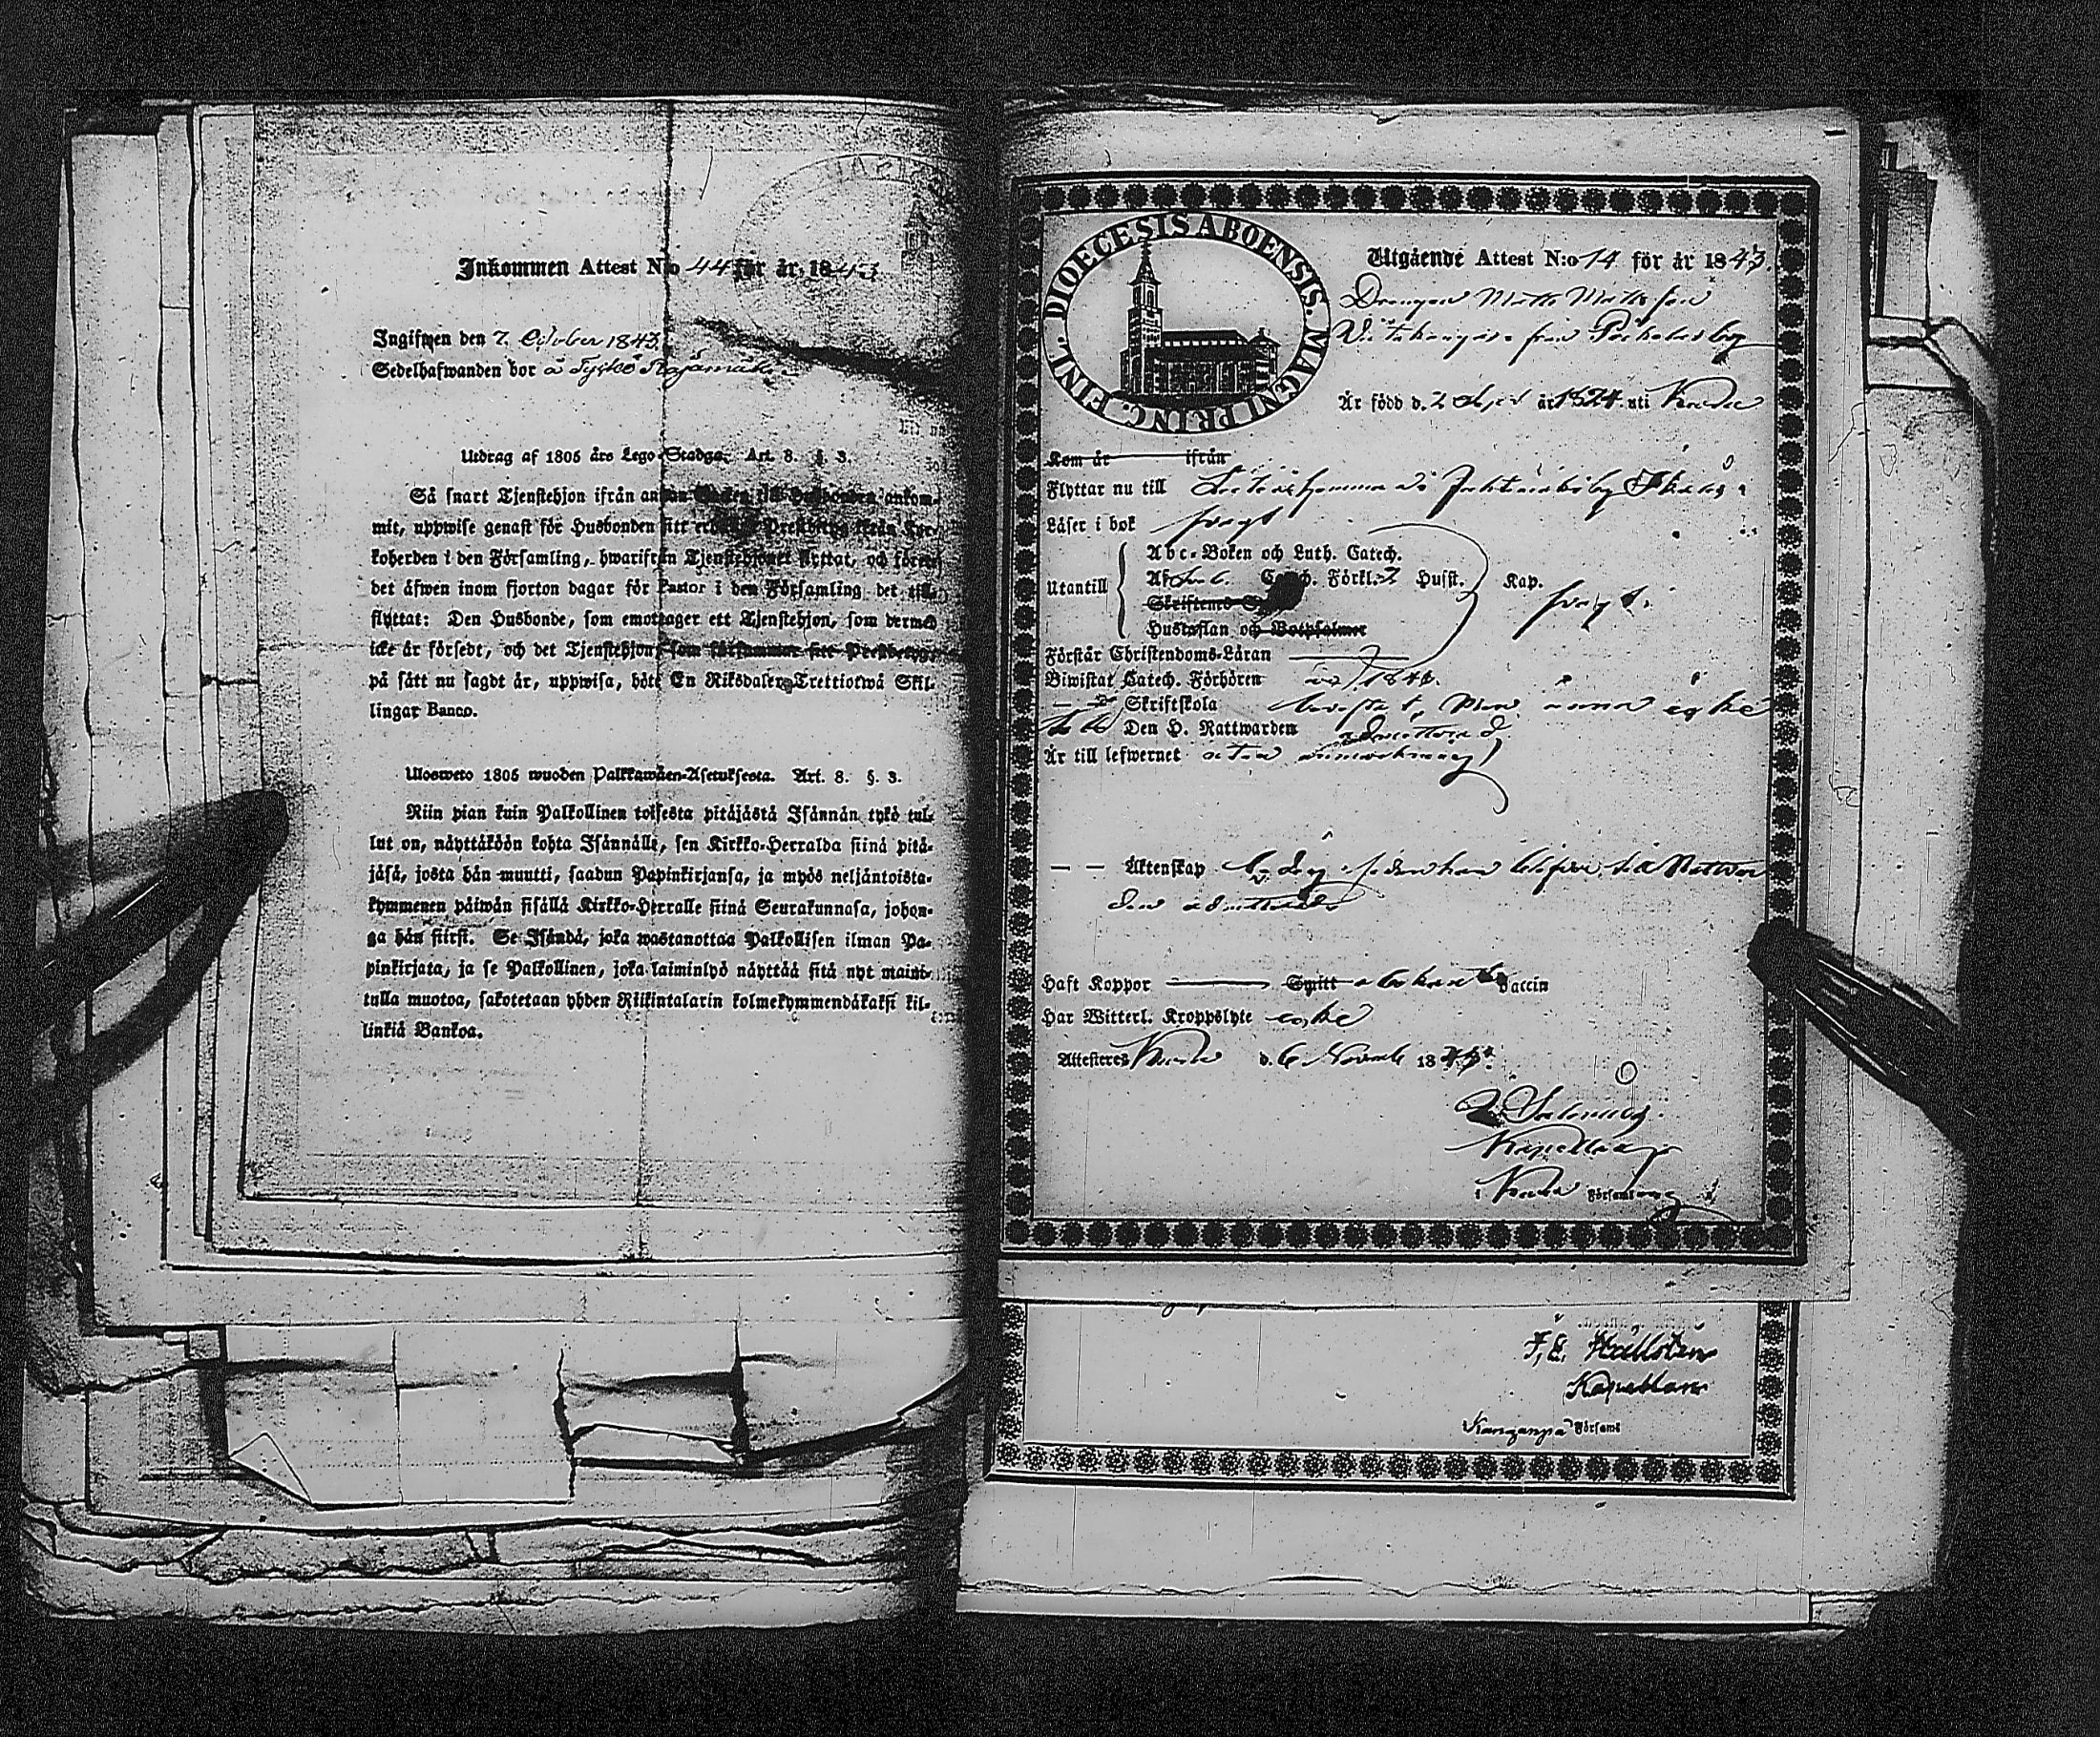 Inkommen Attest N:o 44 för år 1843
Ingifwen den 7. October 1843.
Sedelhafwanden bor å
Utdrag af 1805 års Lego-Stadga. Art. 8. §. 3.
Så snart Tjenstehjon ifrån annan till Husbonden ankom-
mit, uppwise genast för Husbonden sitt Prestbetyg ifrån Kyr-
koherden i den Församling, hwarifrån Tjenstehjonet flyttat, och förete
det äfwen inom fjorton dagar för Pastor i den Församling det till-
flyttat: Den Husbonde, som emottager ett Tjenstehjon, som dermed
icke är försedt, och det Tjenstehjon, som försummar sitt Prestbetyg,
på sätt nu sagdt är, uppwisa, böte En Riksdaler Trettiotwå Skil-
lingar Banco.
Ulosweto 1805 wuoden Palkkawäen-Asetuksesta. Art. 8. §. 3.
Niin pian kuin Palkollinen toisesta pitäjästä Isännän tykö tul-
lut on, näyttäköön kohta Isännälle, sen Kirkko-Herralda siinä pitä-
jäsä, josta hän muutti, saadun Papinkirjansa, ja myös neljäntoista-
kymmenen päiwän sisällä Kirkko-Herralle siinä Seurakunnasa, johon-
ga hän siirsi. Se Isändä, joka wastanottaa Palkollisen ilman Pa-
pinkirjata, ja se Palkollinen, joka laiminlyö näyttää sitä nyt maini-
tulla muotoa, sakotetaan yhden Riikintalarin kolmekymmendäkaksi kil-
linkiä Bankoa.
DIOECESIS ABOENSIS. MAGNI PRINC. FINL.
Utgående Attest N:o 14 för år 1843.
Drengen Matts Matts son
från
Är född d. 2 Sept år 1824 uti
Kom år ifrån
Flyttar nu till
Läser i bok swagt
Utantill
Abc-Boken och Luth. Catech.
Af Catech. Förkl. Husst. Kap.
swagt.
Hustaflan och Botpsalmer
Förstår Christendoms-Läran
Biwistat Catech. Förhören
Skriftskola bewistat, men ännu icke
Den H. Nattwarden admitterad
Är till lefwernet utan anmärkning
— — Äktenskap ledig, sedan han blifwit till Nattwar
den admitterad
Haft Koppor Vaccin
Har Witterl. Kroppslyte icke
Attesteres d. 6 Novemb 1843.
Kapellan
i Församling
F. E. Hällsten
Kapellan
i Kangaspä Församl